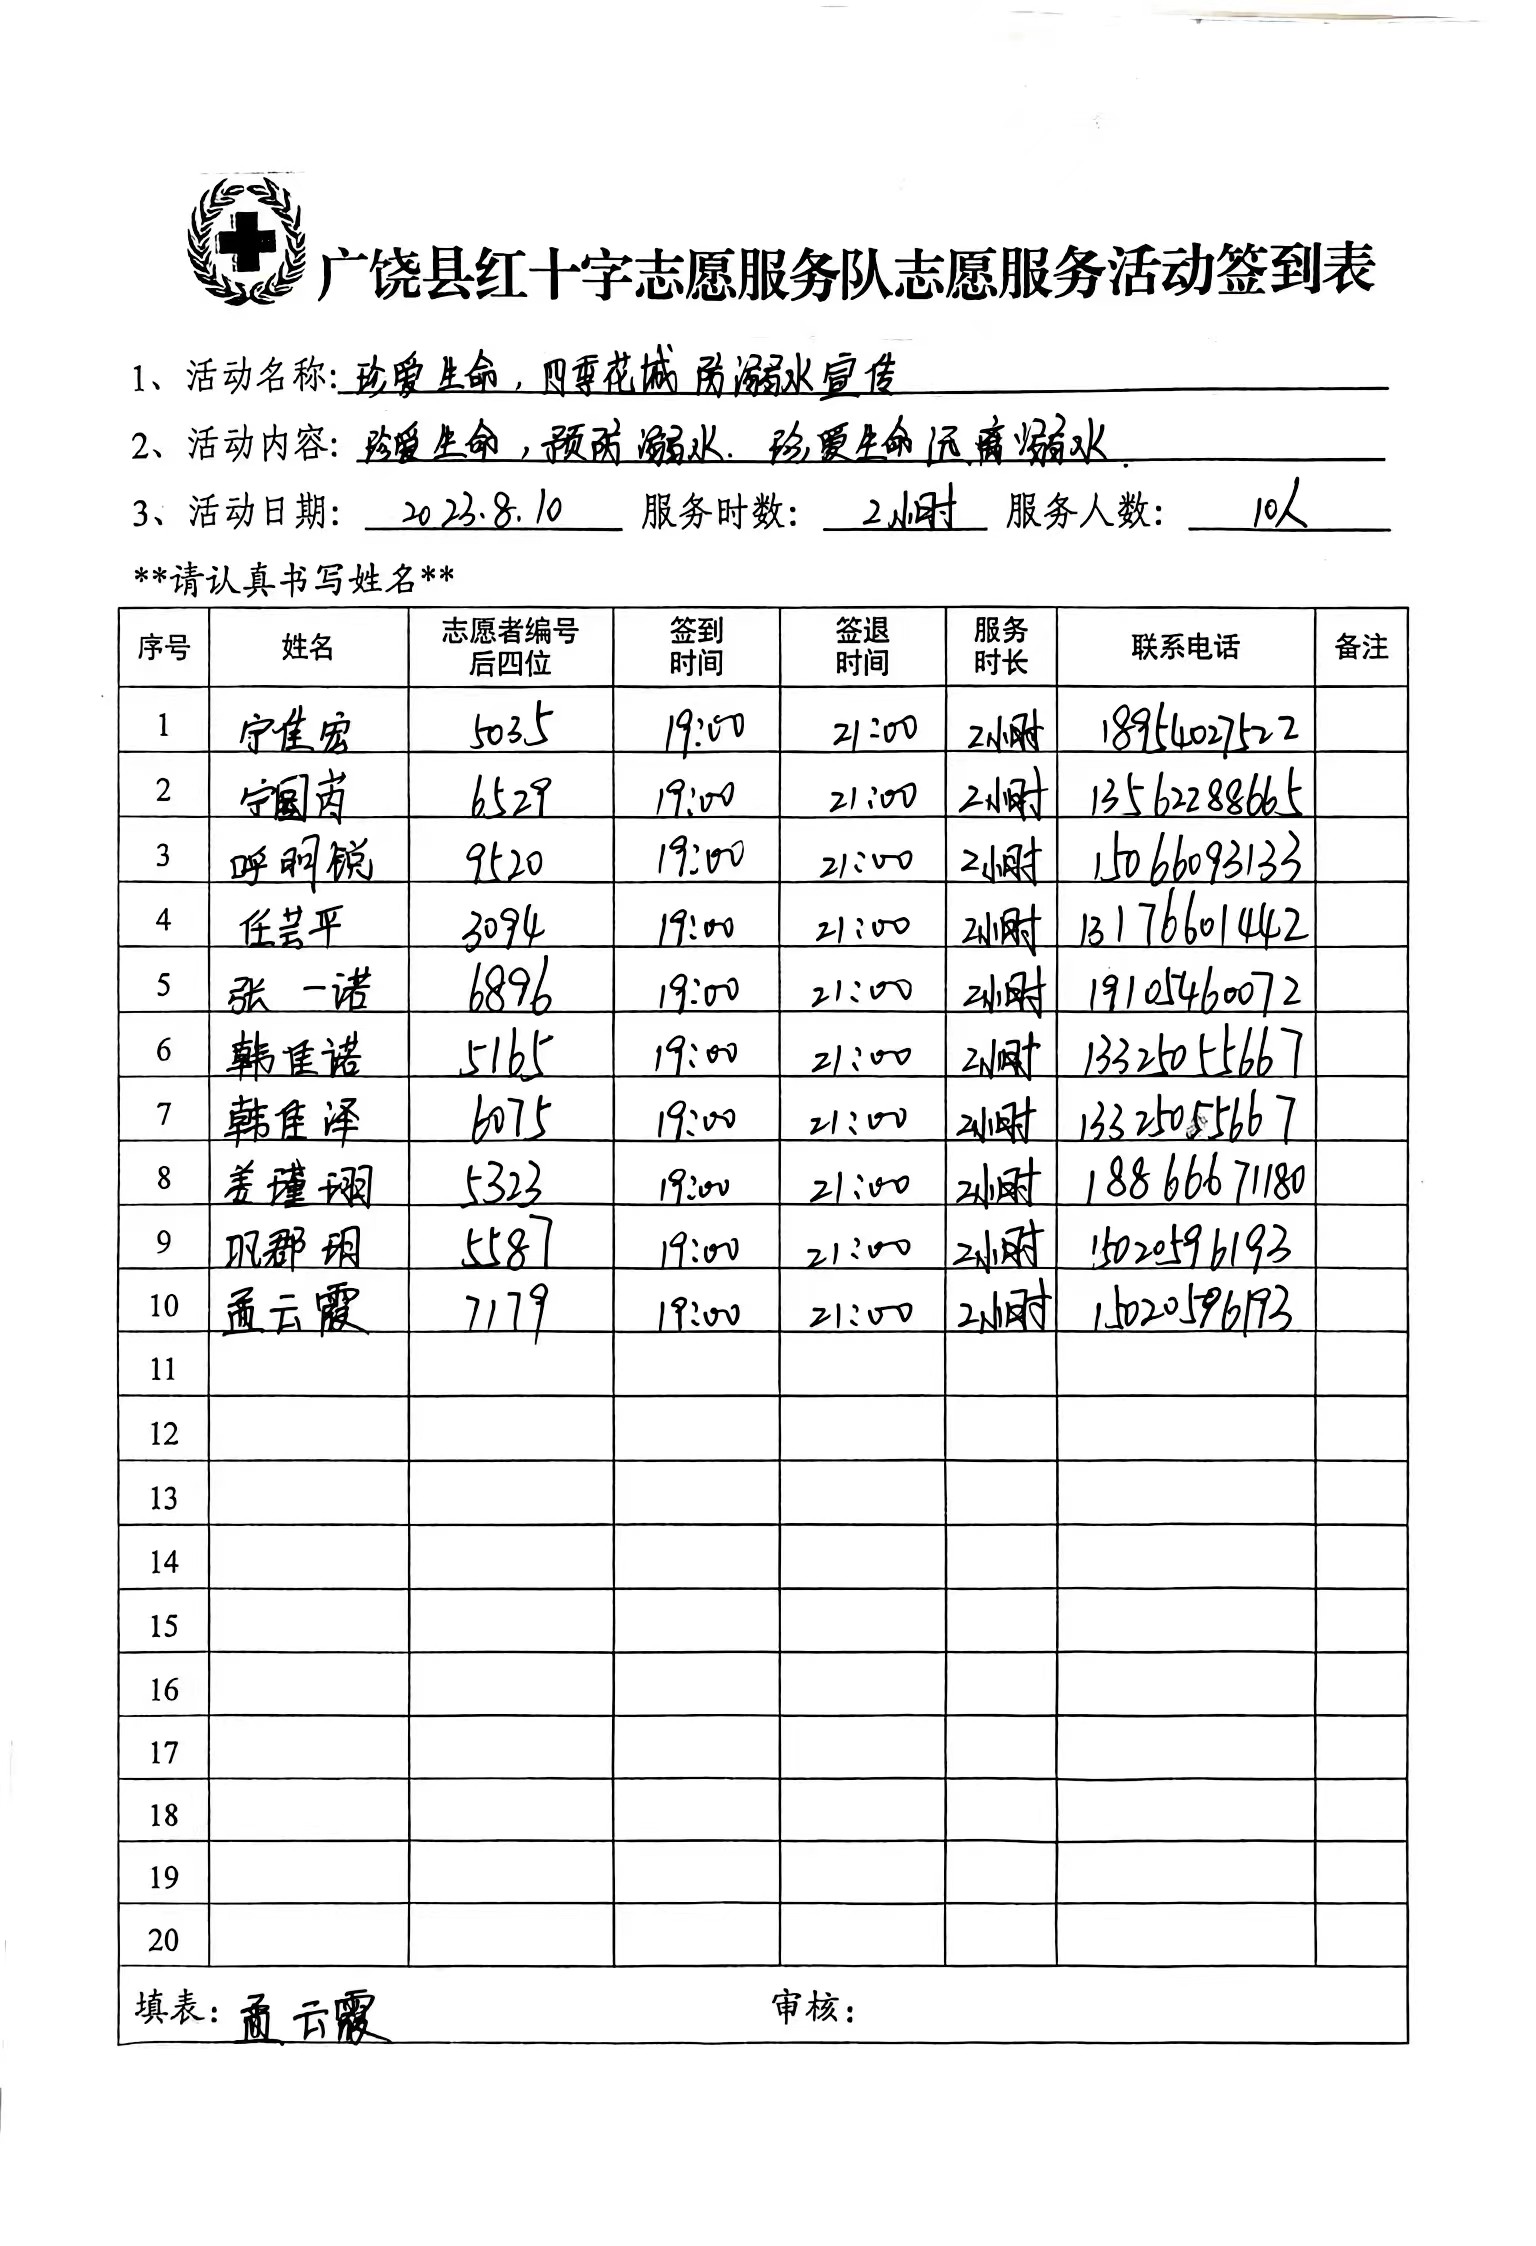 广饶县红十字志愿服务队志愿服务活动签到表
1、活动名称:珍爱生命,四季花城防溺水宣传
2、活动内容:珍爱生命,预防溺水.珍爱生命远离溺水.
3、活动日期: 2023.8.10 服务时数: 2小时 服务人数: 10人
**请认真书写姓名**
序号 姓名 志愿者编号后四位 签到时间 签退时间 服务时长 联系电话 备注
1 宁佳宏 5035 19:00 21:00 2小时 18954027522
2 宁圆芮 6529 19:00 21:00 2小时 13562288665
3 呼明锐 9520 19:00 21:00 2小时 15066093133
4 任芸平 3094 19:00 21:00 2小时 13176601442
5 张一诺 6896 19:00 21:00 2小时 19105460072
6 韩佳诺 5165 19:00 21:00 2小时 13325055667
7 韩佳泽 6075 19:00 21:00 2小时 13325055667
8 姜瑾翊 5323 19:00 21:00 2小时 18866671180
9 巩郡玥 5587 19:00 21:00 2小时 15020596193
10 孟云霞 7179 19:00 21:00 2小时 15020596193
11
12
13
14
15
16
17
18
19
20
填表:孟云霞 审核: